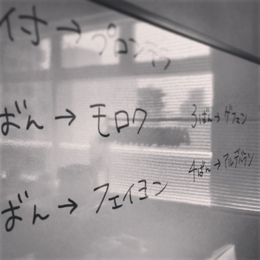 付→プロンテラ
ばん→モロク
ばん→フェイヨン
3ばん→ゲフェン
4ばん→アルデバラン